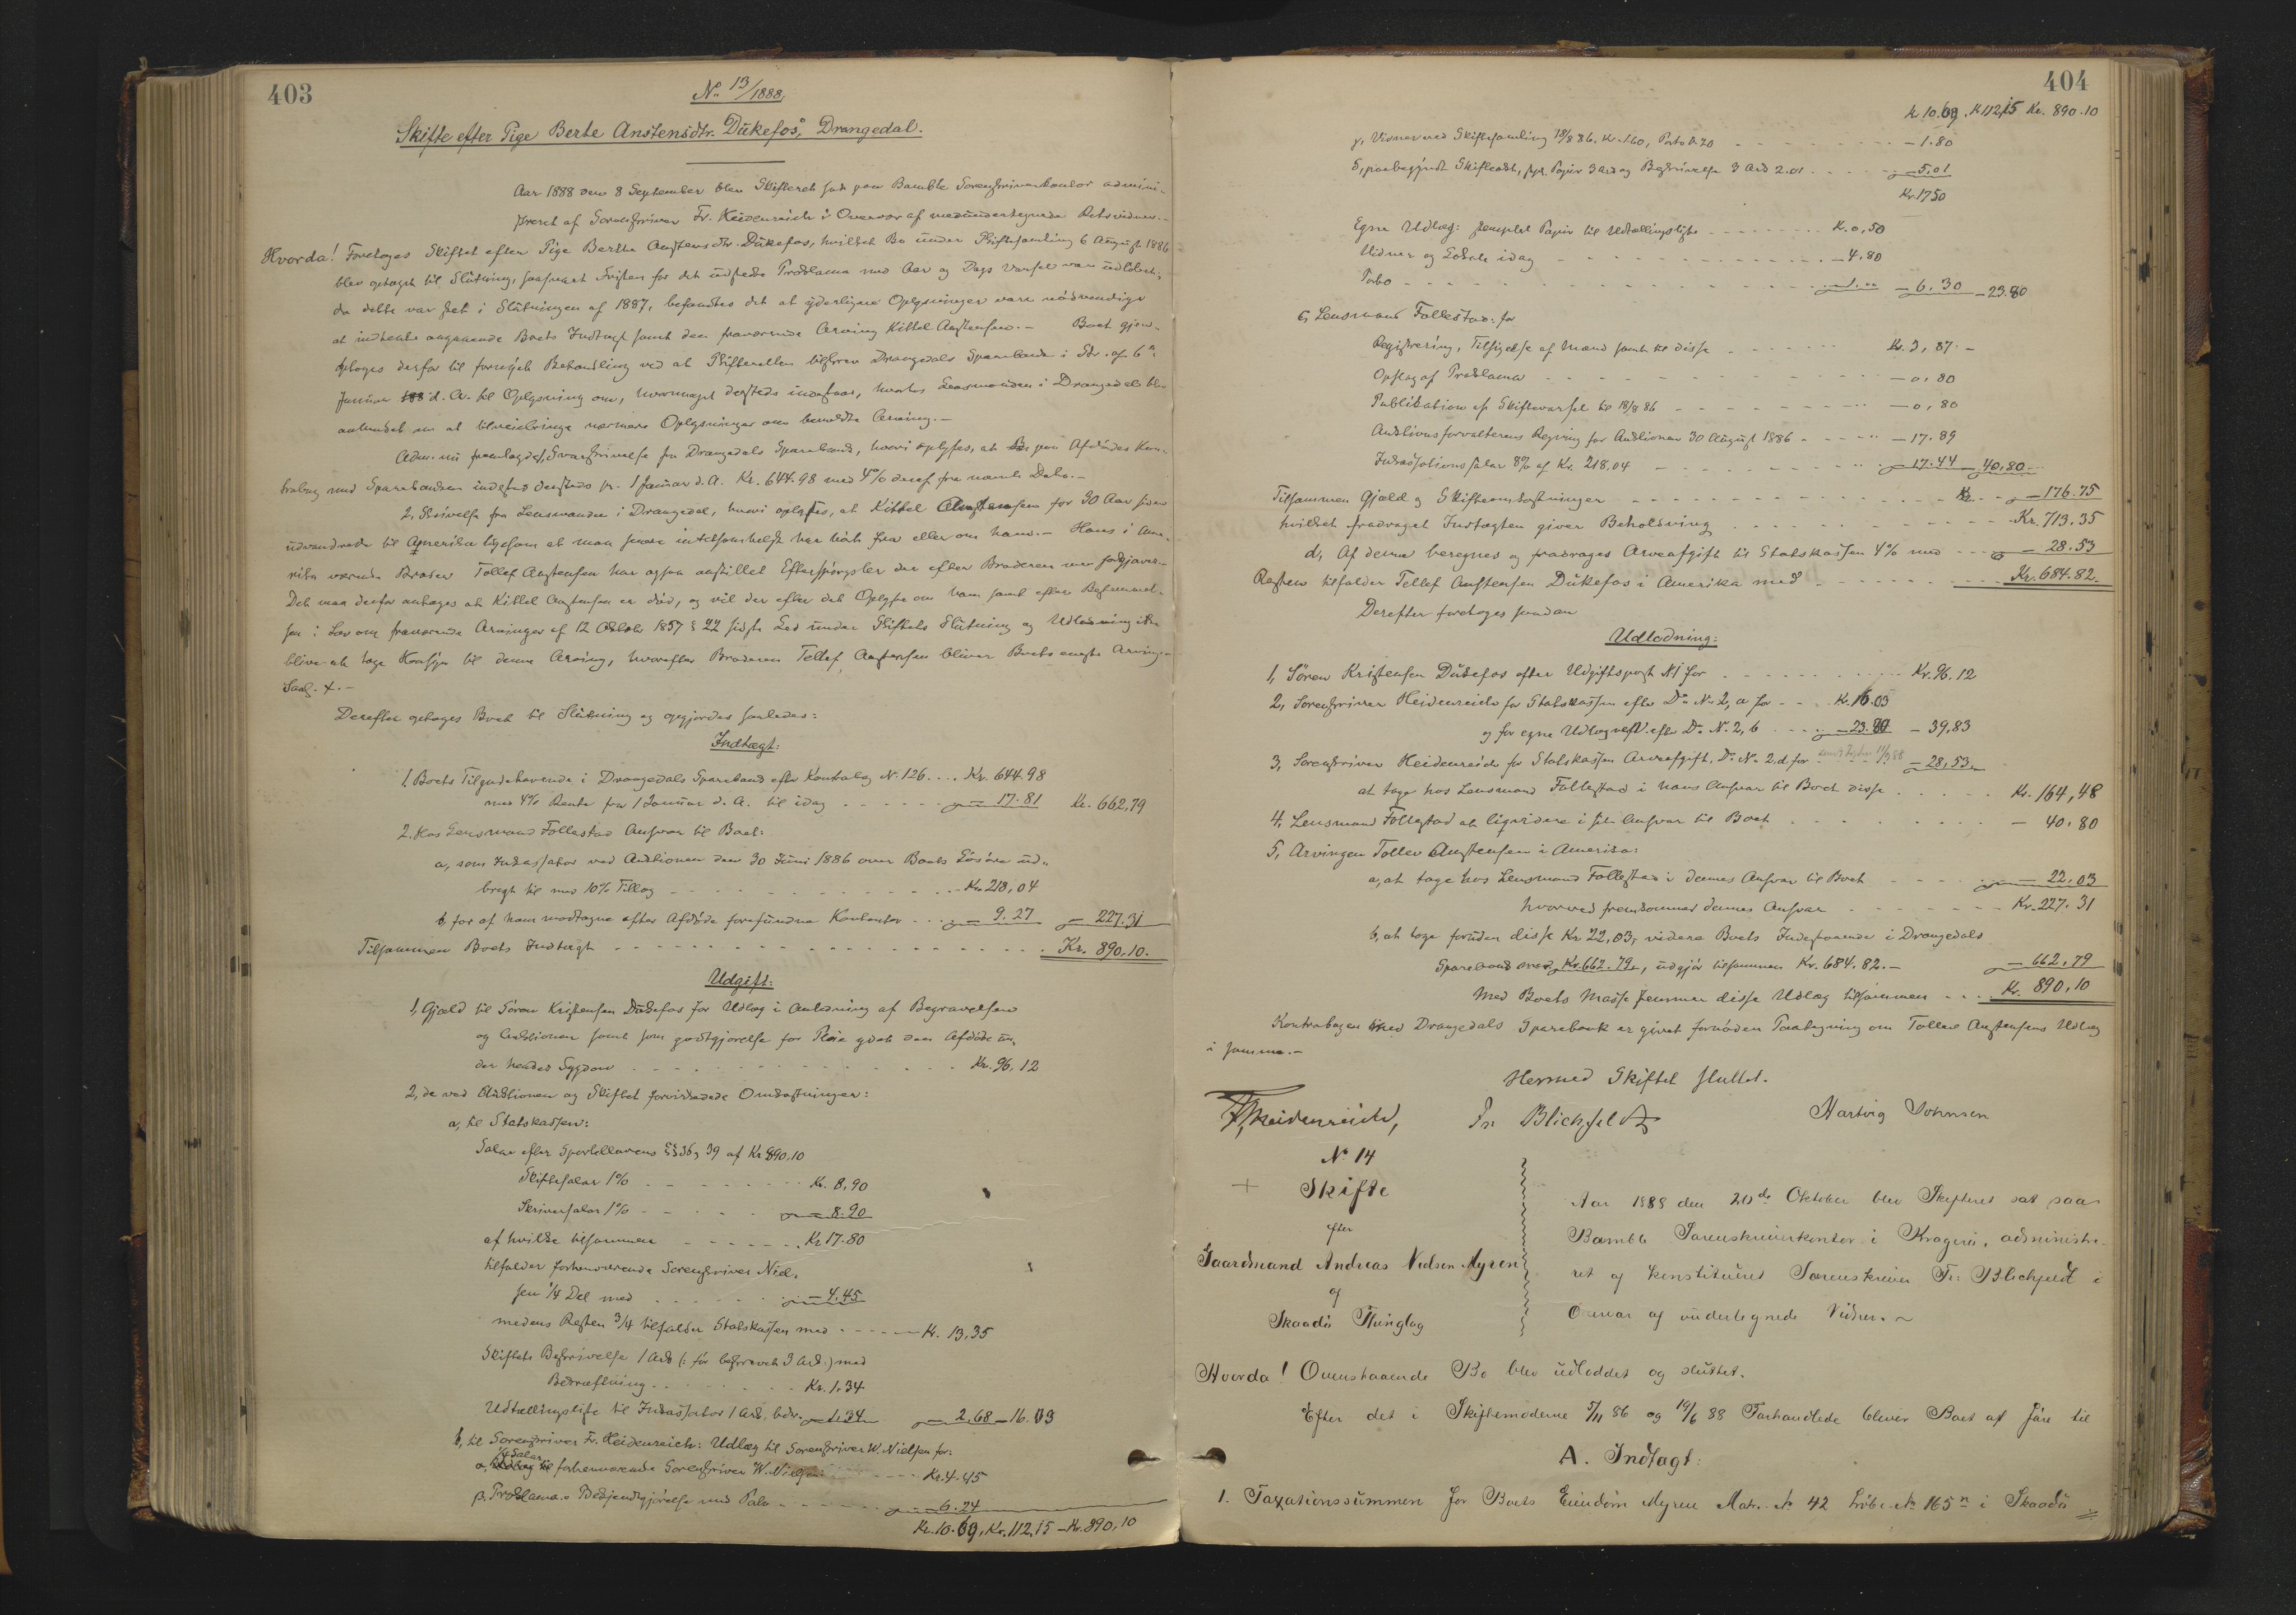 403
No 13/1888,
Skifte efter Pige Berte Anstensdtr. Dükefos, Drangedal.
Aar 1888 den 8 September blev Skifteret sat paa Bamble Sorenskriverkontor admini-
streret af Sorenskriver Fr. Heidenreich i Overvær af medundertegnede Retsvidner.-
Hvorda! Foretoges Skiftet efter Pige Berthe Anstensdtr. Dükefos, hvilket Bo under Skiftesamling 6 August 1886
blev optaget til Slütning, saasnart Fristen for det udstedte Proklama med Aar og Dags Varsel var üdløbet;
da dette var sket i Slütningen af 1887, befandtes det at yderligere Oplysninger vare nødvendige
at indhente angaaende Boets Indtægt samt den fraværende Arving Kittel Anstensen.- Boet gjen-
optoges derfor til fornyet Behandling ved at Skifteretten tilskrev Drangedals Sparebank i Skr. af 6te
Januar d. A. til Oplysning om, hvormeget dersteds indestaar, hvorhos Lensmanden i Drangedal blev
anmodet om at tilveiebringe nærmere Oplysninger om bemeldte Arving.-
Adm. nü fremlagde 1, Svarskrivelse fra Drangedals Sparebank, hvori oplyses, at paa Afdødes Kon-
trabog med Sparebanken indestod dersteds pr. 1 Januar d. A. Kr. 644.98 med 4% deraf fra nævnte Dato.-
2, Skrivelse fra Lensmanden i Drangedal, hvori oplyses, at Kittel Anstensen for 30 Aar siden
üdvandrede til Amerika ligesom at man senere intetsomhelst har hørt fra eller om ham.- Hans i Ame-
rika værende Broder Tollef Anstensen har ogsaa anstillet Efterspørgsler der efter Broderen men forgjæves.-
Det maa derfor antages at Kittel Anstensen er død, og vil der efter det Oplyste om ham samt efter Bestemmel-
sen i Lov om fraværende Arvinger af 12 Oktobr 1857 § 22 sidste Led ünder Skiftets Slütning og Udlodning ikke
blive at tage Hensyn til denne Arving, hvorefter Broderen Tellef Anstensen bliver Boets eneste Arving.-
Derefter optoges Boet til Slütning og opgjordes saaledes:
Indtægt:
1. Boets Tilgodehavende i Drangedals Sparebank efter Kontrabog No. 126 . . . Kr. 644.98
med 4% Rente fra 1 Januar d. A. til idag - - - - - 17.81 Kr. 662.79
2. Hos Lensmand Follestad Ansvar til Boet:
a, som Inkassator ved Auktionen den 30 Juni 1886 over Boets Løsøre üd-
bragt til med 10% Tillæg - - - - - Kr. 218,04
b, for af ham modtagne efter Afdøde forefundne Kontanter - - - 9.27 - 227.31
Tilsammen Boets Indtægt - - - - - Kr. 890.10.
Udgift:
1, Gjæld til Søren Kristensen Dükefos for Udlæg i Anledning af Begravelsen
og Auktionen samt som godtgjørelse for Pleie ydet den Afdøde ün-
der hendes Sygdom - - - - - Kr. 96,12
2, de ved Auktionen og Skiftet forvirkede Omkostninger:
a, til Statskassen:
Salær efter Sportellovens §§ 36, 39 af Kr 890.10
Skiftesalær 1% - - - - - Kr. 8,90
Skriversalær 1% - - - - - 8.90
af hvilke tilsammen - - - - - Kr 17.80
tilfalder forhenværende Sorenskriver Niel-
sen 1/4 Del med - - - - - 4.45
medens Resten 3/4 tilfalder Statskassen med - - - - - Kr. 13,35
Skiftets Beskrivelse 1 Ark (: før beskrevet 3 Ark:) med
Bekræftning - - - - - Kr. 1.34
Udtællingsliste til Inkassator 1 Ark, bekr. - 1.34 - 2,68 - 16.03
b, til Sorenskriver Fr. Heidenreich: Udlæg til Sorenskriver W. Nielsen for:
a, 1/4 Salær til forhenværende Sorenskriver W. Nielsen - - - Kr. 4.45
β. Proklama.s Bekjendtgjørelse med Porto - - - - - 6.24
Kr. 10.69, Kr. 112,15 - Kr. 890,10
404
Kr 10.69, Kr 112,15 Kr. 890.10
γ, Vidner ved Skiftesamling 18/8 86. Kr. 1.60, Porto 0.20 - - - - - 1.80
δ, paabegyndt Skifteakt, stpl. Papir 3 Ark og Beskrivelse 3 Ark 2.01 - - - - - 5,01
Kr. 17.50
Egne Udlæg: stemplet Papir til Udtællingsliste - - - - - K. 0,50
Vidner og Lokale idag - - - - - 4.80
Porto - - - - - - 6.30 - 23.80
c, Lensmand Follestad: for
Registrering, Tilsigelse af Mænd samt til disse - - - - - Kr. 3,87.-
Opslag af Proklama - - - - - 0,80
Publikation af Skiftevarsel til 18/8 86 - - - - - 0,80
Auktionsforvalterens Regning for Auktionen 30 August 1886 - - - - - 17.89
Inkassationssalær 8% af Kr. 218,04 - - - - - 17.44 - 40,80
Tilsammen Gjæld og Skifteomkostninger - - - - - Kr. - 176.75
hvilket fradraget Indtægten giver Beholdning - - - - - Kr. 713.35
d, Af denne beregnes og fradrages Arveafgift til Statskassen 4% med - - - 28.53
Resten tilfalder Tellef Anstensen Dükefos i Amerika med - - - - - Kr. 684.82.
Derefter foretoges saadan
Udlodning:
1, Søren Kristensen Dükefos efter Udgiftspost No 1 for - - - - - Kr. 96.12
2, Sorenskriver Heidenreich for Statskassen efter Do No 2, a for - - - K. 16.03
og for egne Udlæg efter Do No. 2, b - - - 23.80 - 39,83
3, Sorenskriver Heidenreich for Statskassen Arveafgift, Do No 2. d. for - 28,53
at tage hos Lensmand Follestad i hans Ansvar til Boet disse - - - - - Kr. 164,48
4, Lensmand Follestad at ligvidere i sit Ansvar til Boet - - - - - 40.80
5, Arvingen Tollev Anstensen i Amerika:
a, at tage hos Lensmand Follestad i dennes Ansvar til Boet - - - - - 22.03
hvorved fremkommer dennes Ansvar - - - - - Kr. 227.31
b, at tage foruden disse Kr 22,03, videre Boets Indestaaende i Drangedals
Sparebank med Kr. 662.79, üdgjør tilsammen Kr. 684.82.- - 662,79
Med Boets Masse stemmer disse Udlæg tilsammen - - - Kr. 890,10
Kontrabogen med Drangedals Sparebank er givet fornøden Paategning om Tollef Anstensens Udlæg
i samme.-
Hermed Skiftet sluttet.
Fr. Heidenreich, Fr Blichfeldt Hartvig Johnsen
No 14
Skifte
efter
Gaardmand Andreas Nielsen Myren
af
Skaadø Thinglag
Aar 1888 den 20de Oktober blev Skifteret sat paa
Bamble Sorenskriverkontor i Kragerø, administre-
ret af konstitueret Sorenskriver Fr. Blichfeldt i
Overvær af undertegnede Vidner.
Hvorda! Ovenstaaende Bo blev üdloddet og slüttet.
Efter det i Skiftemøderne 5/11 86 og 19/6 88 Forhandlede bliver Boet at føre til
A. Indtægt:
1. Taxationssummen for Boets Eiendom Myren Matr. No 42 Løbe No 165 n i Skaadø